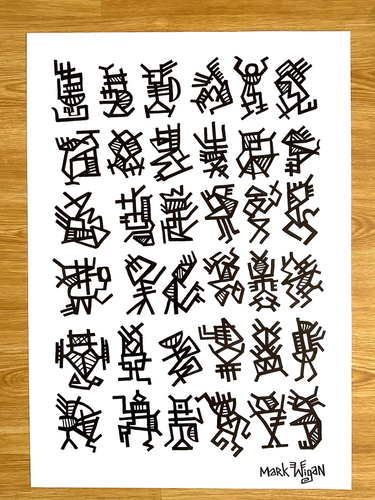 MARK WIGAN